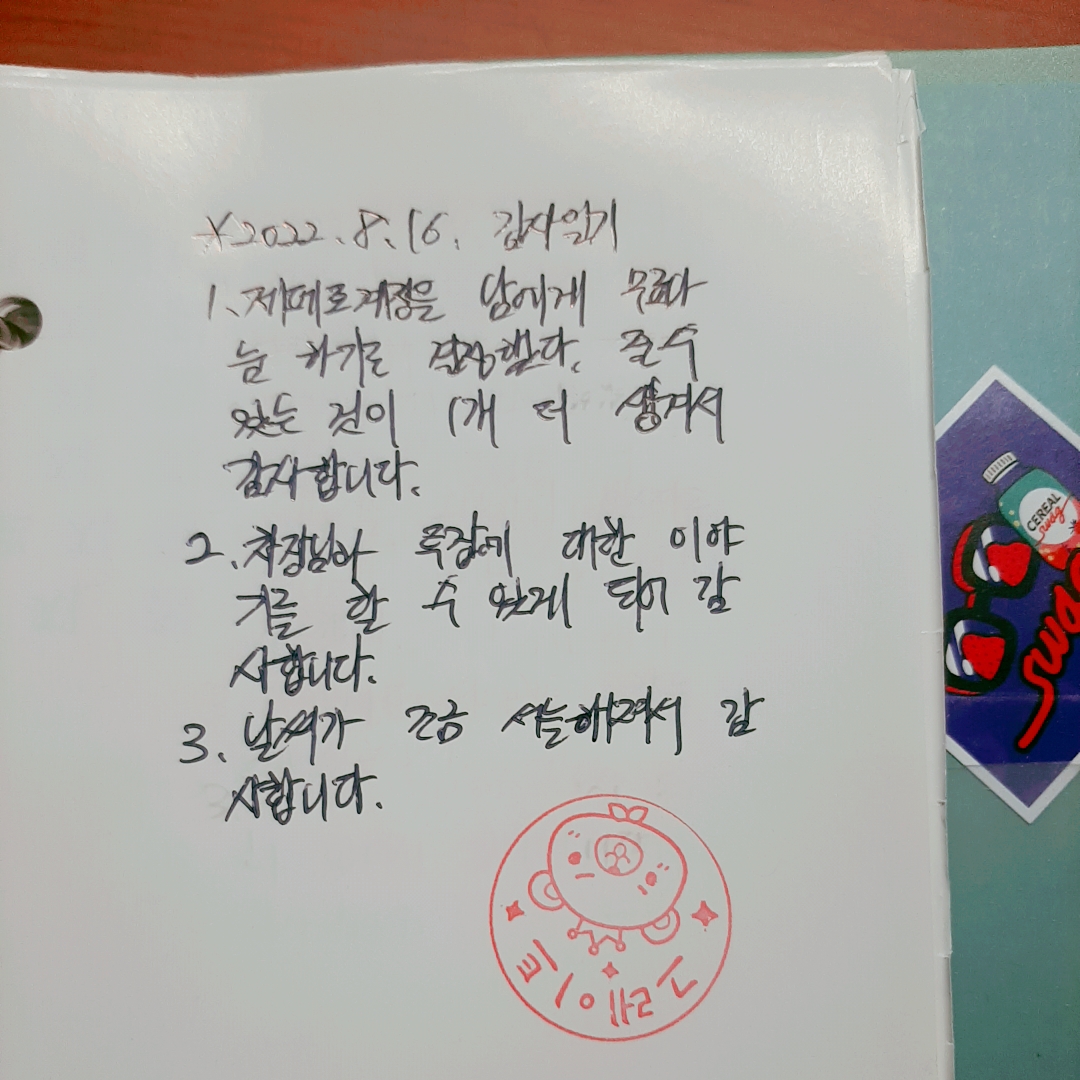 *2022.8.16. 감사일기
1. 제페토계정을 남에게 무료나
눔 하기로 결정했다. 줄 수
있는 것이 1개 더 생겨서
감사합니다.
2. 차장님하 루감에 대한 이야
기를 할 수 있게 되어 감
사합니다.
3. 날씨가 조금 서늘해져서 감
사합니다.
그레이트
CEREAL